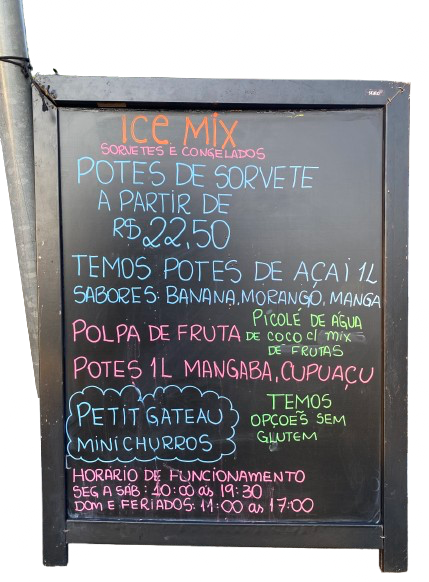 ICE MIX
SORVETES E CONGELADOS
POTES DE SORVETE
A PARTIR DE
R$ 22,50
TEMOS POTES DE AÇAÍ 1L
SABORES: BANANA, MORANGO, MANGA
POLPA DE FRUTA
PICOLÉ DE ÁGUA
DE COCO C/ MIX
DE FRUTAS
POTES 1L MANGABA, CUPUAÇU
PETIT GATEAU
MINI CHURROS
TEMOS
OPÇÕES SEM
GLUTEM
HORARIO DE FUNCIONAMENTO
SEG A SÁB: 10:00 ás 19:30
DOM E FERIADOS: 11:00 as 17:00